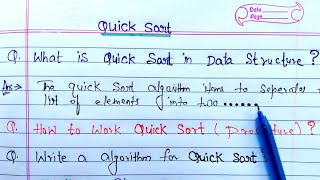 Quick Sort
Date
Page
Q. What is Quick Sort in Data Structure ?
Ans → The quick Sort algorithm to Seperate
list of elements into two ........
Q. How to Work Quick Sort ( Procedure ) ?
Q. Write a algorithm for Quick Sort